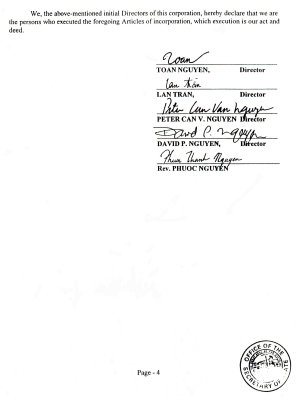 We, the above-mentioned initial Directors of this corporation, hereby declare that we are
the persons who executed the foregoing Articles of incorporation, which execution is our act and
deed.
Toan
TOAN NGUYEN, Director
Lan trần
LAN TRAN, Director
Peter Can Van Nguyen
PETER CAN V. NGUYEN Director
David P. Nguyen
DAVID P. NGUYEN, Director
Phuoc Thanh Nguyen
Rev. PHUOC NGUYEN
Page - 4
OFFICE OF THE
SECRETARY OF